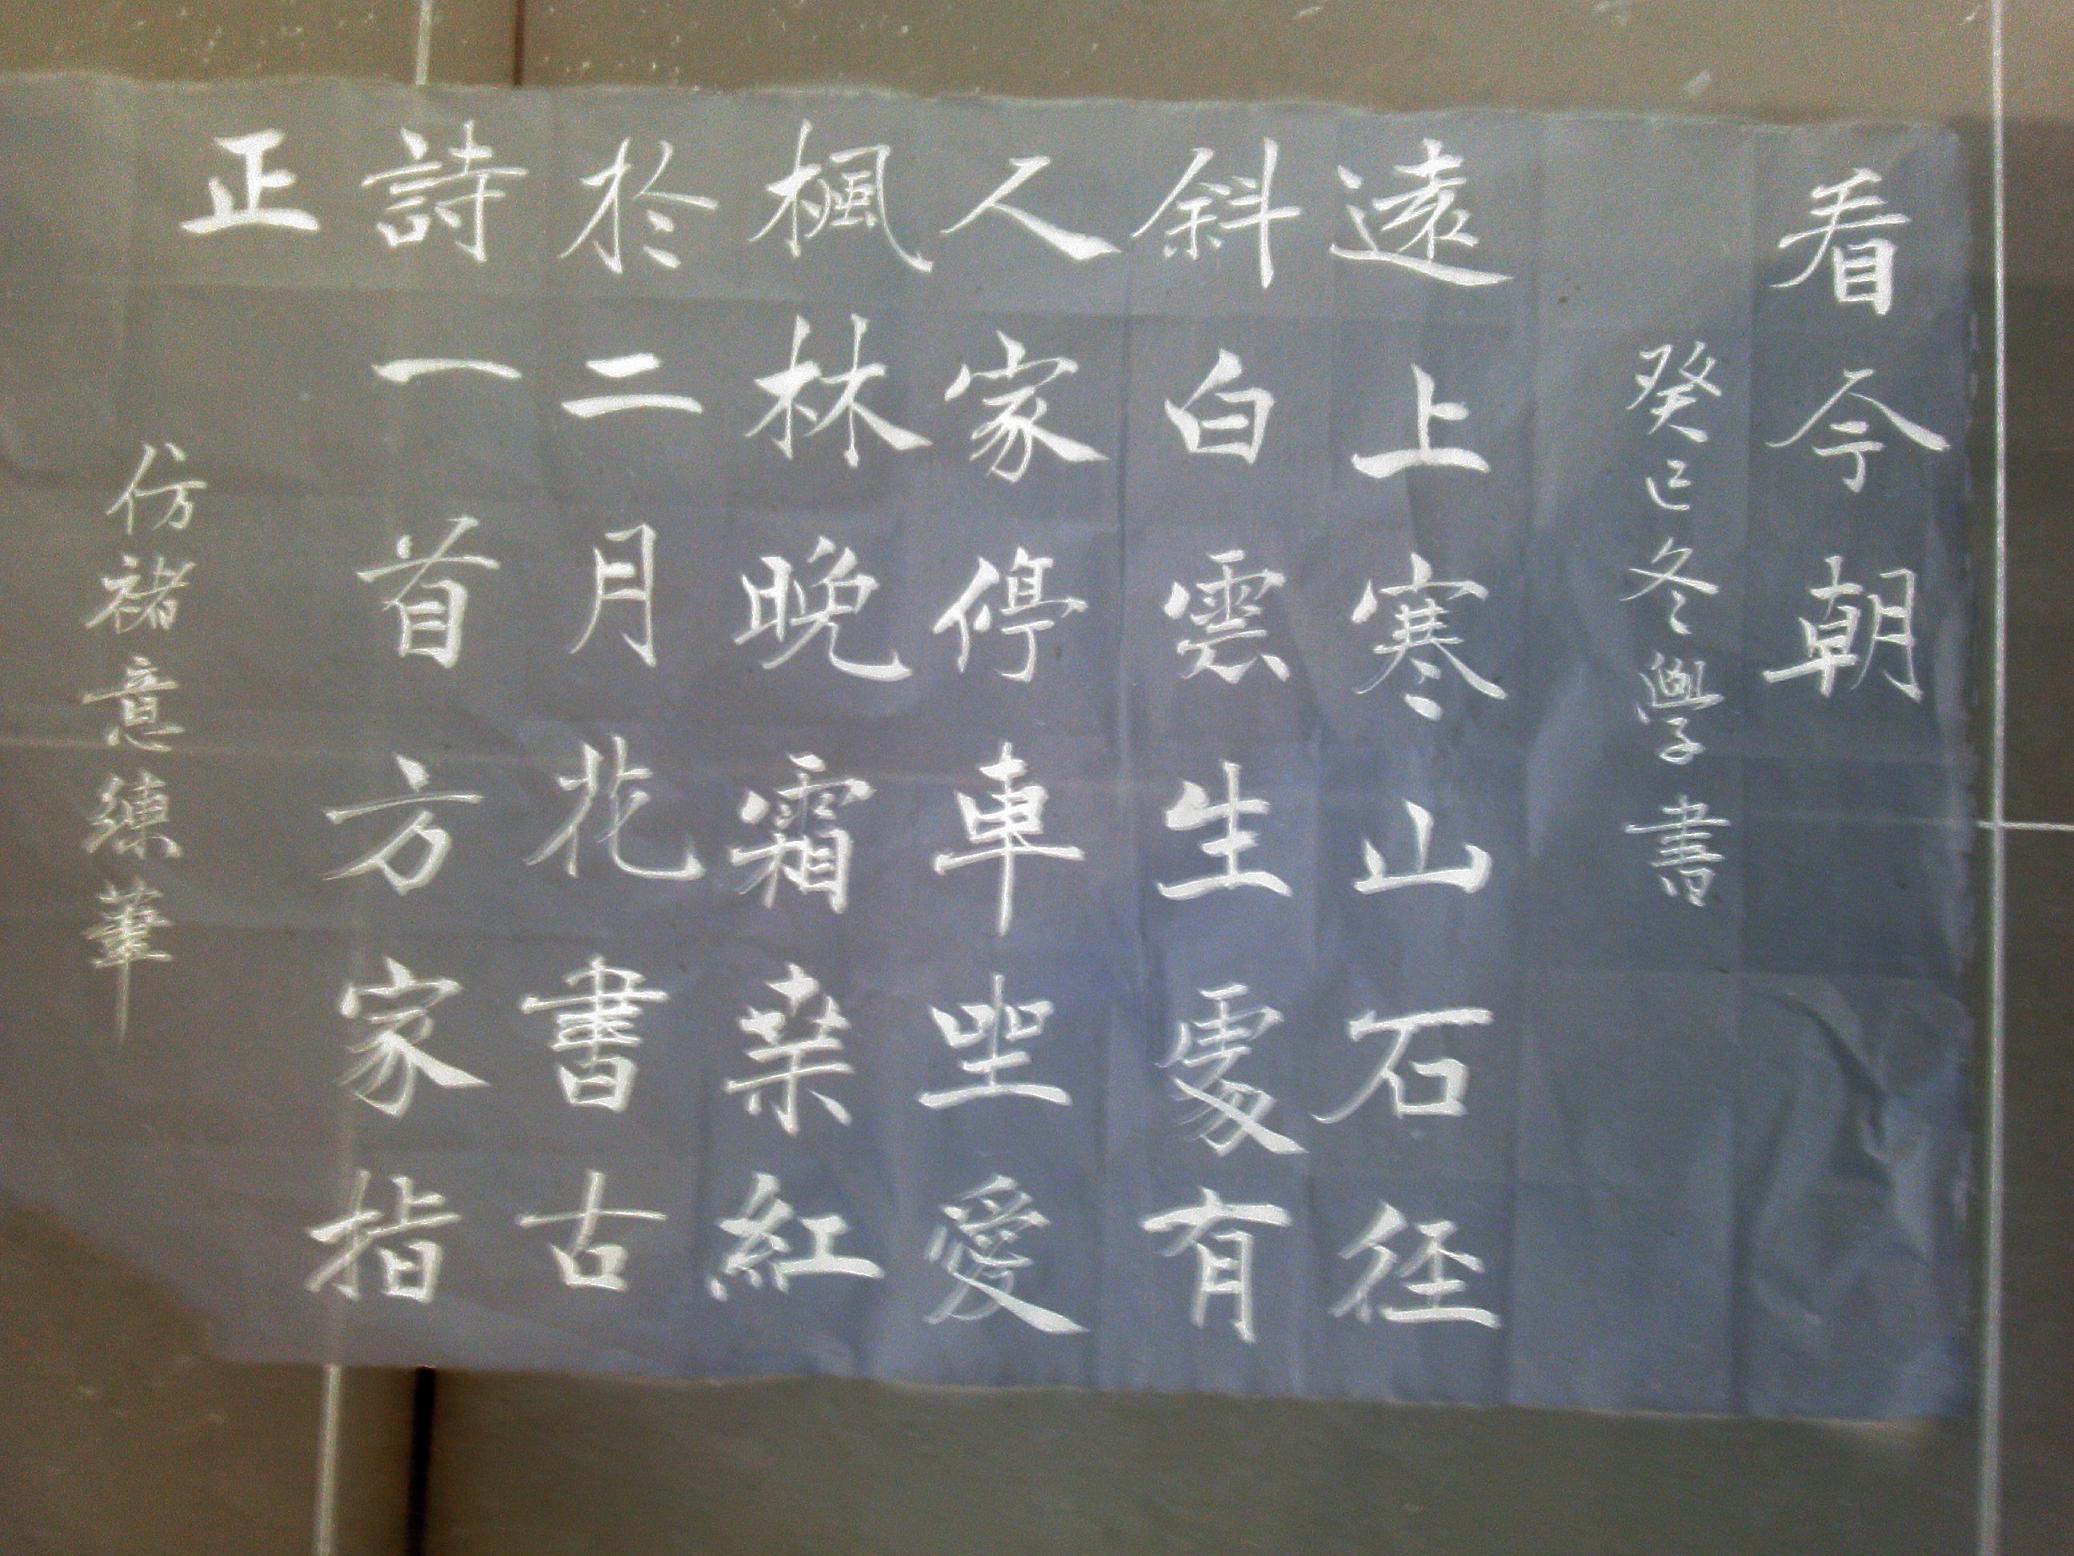 看今朝
癸巳冬學書
遠上寒山石徑
斜白雲生處有
人家停車坐愛
楓林晚霜葉紅
於二月花書古
詩一首方家指
正
仿褚意練筆